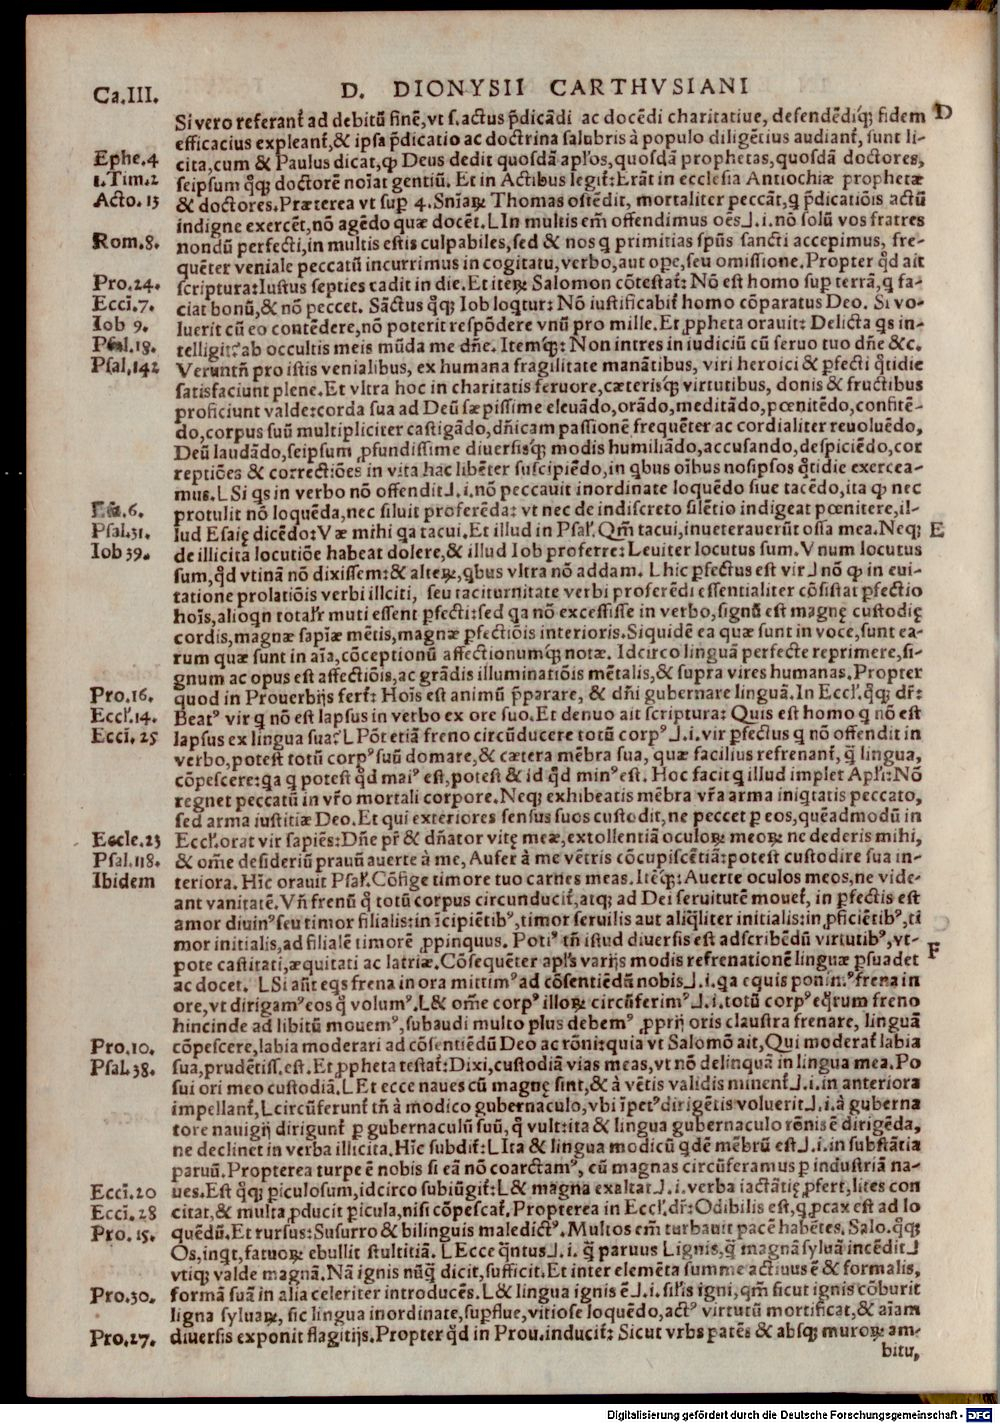 Ca.III.
D. DIONYSII CARTHVSIANI
Si vero referant᷑ ad debitū finē, vt s. actus p̄dicādi ac docēdi charitatiue, defendēdiq́; fidem D
efficacius expleant᷑, & ipsa p̄dicatio ac doctrina salubris à populo diligētius audiant᷑, sunt li-
Ephe.4 cita, cum & Paulus dicat, ꝙ Deus dedit quosdā apľos, quosdā prophetas, quosdā doctores,
1.Tim.2 seipsum q̊q; doctorē noīat gentiū. Et in Actibus legit᷑: Erāt in ecclesia Antiochiæ prophetæ
Acto.13 & doctores. Præterea vt sup̱ 4. Snīaꝝ Thomas ostēdit, mortaliter peccāt, q̱ p̄dicatiōis actū
indigne exercēt, nō agēdo quæ docēt. L In multis em̄ offendimus oēs ⅃ .i. nō solū vos fratres
Rom.8. nondū perfecti, in multis estis culpabiles, sed & nos q̱ primitias spūs sancti accepimus, fre-
quēter veniale peccatū incurrimus in cogitatu, verbo, aut ope̱, seu omissione. Propter q̊d ait
Pro.24. scriptura: Iustus septies cadit in die. Et iteꝝ Salomon cōtestat᷑: Nō est homo sup̱ terrā, q̱ fa-
Ecci.7. ciat bonū, & nō peccet. Sāctus q̊q; Iob loqṯur: Nō iustificabit᷑ homo cōparatus Deo. Si vo-
Iob 9. luerit cū eo contēdere, nō poterit respōdere vnū pro mille. Et ꝓpheta orauit: Delicta qs̱ in-
Psal.18. telligit? ab occultis meis mūda me dn̄e. Itemq́;: Non intres in iudiciū cū seruo tuo dn̄e &c.
Psal.142 Veruntn̄ pro istis venialibus, ex humana fragilitate manātibus, viri heroici & ꝑfecti q̊tidie
satisfaciunt plene. Et vltra hoc in charitatis feruore, cæterisq́; virtutibus, donis & fructibus
proficiunt valde: corda sua ad Deū sæpissime eleuādo, orādo, meditādo, pœnitēdo, confitē-
do, corpus suū multipliciter castigādo, dn̄icam passionē frequēter ac cordialiter reuoluēdo,
Deū laudādo, seipsum ꝓfundissime diuersisq́; modis humiliādo, accusando, despiciēdo, cor
reptiōes & correctiōes in vita hac libēter suscipiēdo, in qḇus oībus nosipsos q̊tidie exercea-
mus. L Si qs̱ in verbo nō offendit ⅃ .i. nō peccauit inordinate loquēdo siue tacēdo, ita ꝙ nec
Esa.6. protulit nō loquēda, nec siluit proferēda: vt nec de indiscreto silētio indigeat pœnitere, il-
Psal.31. lud Esaię dicēdo: Væ mihi qa̱ tacui. Et illud in Psaľ. Qm̄ tacui, inueterauerūt ossa mea. Neq; E
Iob 39. de illicita locutiōe habeat dolere, & illud Iob proferre: Leuiter locutus sum. Vnum locutus
sum, q̊d vtinā nō dixissem: & alteꝝ, qḇus vltra nō addam. L hic ꝑfectus est vir ⅃ nō ꝙ in eui-
tatione prolatiōis verbi illciti, seu taciturnitate verbi proferēdi essentialiter cōsistat ꝑfectio
hoīs, alioqṉ totaľr muti essent ꝑfecti: sed qa̱ nō excessisse in verbo, signū est magnę custodię
cordis, magnæ sapīæ mētis, magnæ ꝑfectiōis interioris. Siquidē ea quæ sunt in voce, sunt ea-
rum quæ sunt in aīa, cōceptionū affectionumq́; notæ. Idcirco linguā perfecte reprimere, si-
gnum ac opus est affectiōis, ac grādis illuminatiōis mētalis, & supra vires humanas. Propter
Pro.16. quod in Prouerbijs fert᷑: Hoīs est animū p̄parare, & dn̄i gubernare linguā. In Eccľ. q̊q; dr᷑:
Eccľ.14. Beatꝰ vir q̱ nō est lapsus in verbo ex ore suo. Et denuo ait scriptura: Quis est homo q̱ nō est
Ecci. 25 lapsus ex lingua sua? L Pōt etiā freno circūducere totū corpꝰ ⅃ .i. vir ꝑfectus q̱ nō offendit in
verbo, potest totū corpꝰ suū domare, & cætera mēbra sua, quæ facilius refrenant᷑, q̄ lingua,
cōpescere: qa̱ q̱ potest q̊d maiꝰ est, potest & id q̊d minꝰ est. Hoc facit q̱ illud implet Apľi: Nō
regnet peccatū in vr̄o mortali corpore. Neq; exhibeatis mēbra vr̄a arma iniqṯatis peccato,
sed arma iustitiæ Deo. Et qui exteriores sensus suos custodit, ne peccet ꝑ eos, quēadmodū in
Eccle.23 Eccľ. orat vir sapiēs: Dn̄e pr̄ & dn̄ator vitę meæ, extollentiā oculoꝝ meoꝝ ne dederis mihi,
Psal.118. & om̄e desideriū prauū auerte à me, Aufer à me vētris cōcupiscētiā: potest custodire sua in-
Ibidem teriora. Hīc orauit Psaľ. Cōfige timore tuo carnes meas. Itēq́;: Auerte oculos meos, ne vide-
ant vanitatē. Vn̄ frenū q̱ totū corpus circunducit᷑, atq; ad Dei seruitutē mouet᷑, in ꝑfectis est
amor diuinꝰ seu timor filialis: in īcipiētibꝰ, timor seruilis aut aliq̄liter initialis: in ꝓficiētibꝰ, ti
mor initialis, ad filialē timorē ꝓpinquus. Potiꝰ tn̄ istud diuersis est adscribēdū virtutibꝰ, vt-
pote castitati, æquitati ac latriæ. Cōsequēter apľs varijs modis refrenationē linguæ ꝑsuadet F
ac docet. L Si aūt eqs̱ frena in ora mittimꝰ ad cōsentiēdū nobis ⅃ .i. qa̱ equis ponimꝰ frena in
ore, vt dirigamꝰ eos q̊ volumꝰ. L & om̄e corpꝰ illoꝝ circūferimꝰ ⅃ .i. totū corpꝰ eq̊rum freno
hincinde ad libitū mouemꝰ, subaudi multo plus debemꝰ ꝓprij oris claustra frenare, linguā
Pro.10. cōpescere, labia moderari ad cōsentiēdū Deo ac rōni: quia vt Salomō ait, Qui moderat᷑ labia
Psal.38. sua, prudētiss. est. Et ꝓpheta testat᷑: Dixi, custodiā vias meas, vt nō delinquā in lingua mea. Po
sui ori meo custodiā. L Et ecce naues cū magnę sint, & à vētis validis minent᷑ ⅃ .i. in anteriora
impellant᷑, L circūferunt᷑ tn̄ à modico gubernaculo, vbi īpetꝰ dirigētis voluerit ⅃ .i. à guberna
tore nauigij dirigunt᷑ ꝑ gubernaculū suū, q̊ vult: ita & lingua gubernaculo rōnis ē dirigēda,
ne declinet in verba illicita. Hīc subdit᷑: L Ita & lingua modicū qḏē mēbrū est ⅃ .i. in substātia
paruū. Propterea turpe ē nobis si eā nō coarctamꝰ, cū magnas circūferamus ꝑ industriā na-
Ecci.20 ues. Est q̊q; ꝑiculosum, idcirco subiūgit᷑: L & magna exaltat ⅃ .i. verba iactātię ꝓfert, lites con
Ecci.28 citat, & multa ꝓducit ꝑicula, nisi cōpescat᷑. Propterea in Eccľ. dr᷑: Odibilis est, q̱ ꝓcax est ad lo
Pro.15. quēdū. Et rursus: Susurro & bilinguis maledictꝰ. Multos em̄ turbauit pacē habētes. Salo. q̊q;
Os, inqṯ, fatuoꝝ ebullit stultitiā. L Ecce q̄ntus ⅃ .i. q̄ paruus L ignis, q̄ magnā syluā incēdit ⅃
vtiq; valde magnā. Nā ignis nūq̄ dicit, sufficit. Et inter elemēta summe actiuus ē & formalis,
Pro.30. formā suā in alia celeriter introducēs. L & lingua ignis ē ⅃ .i. siľis igni, qm̄ sicut ignis cōburit
ligna syluaꝝ, sic lingua inordinate, supflue, vitiose loquēdo, actꝰ virtutū mortificat, & aīam
Pro.27. diuersis exponit flagitijs. Propter q̊d in Prou. inducit᷑: Sicut vrbs patēs & absq; muroꝝ am-
bitu,
Digitalisierung gefördert durch die Deutsche Forschungsgemeinschaft - DFG